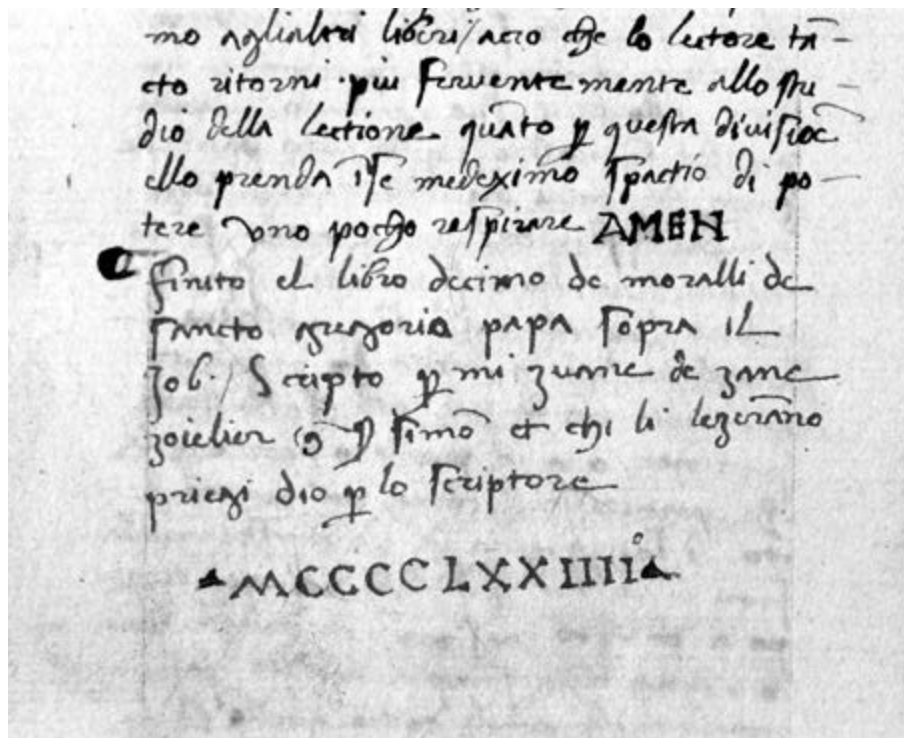 mo aglialtri libri/acio che lo lectore tā-
cto ritorni più ferventemente allo stu-
dio della lectione quāto ꝑ questa divisiōe
ello prenda ī se medeximo spactio di po-
tere uno pocho respirare AMEN
finito el libro decimo de moralli de
sancto gregorio papa sopra IL
Job. / Scripto ꝑ mi zuane de zane
zoielier et chi li lezerāno
priegi dio ꝑ lo scriptore
MCCCCLXXIIII°